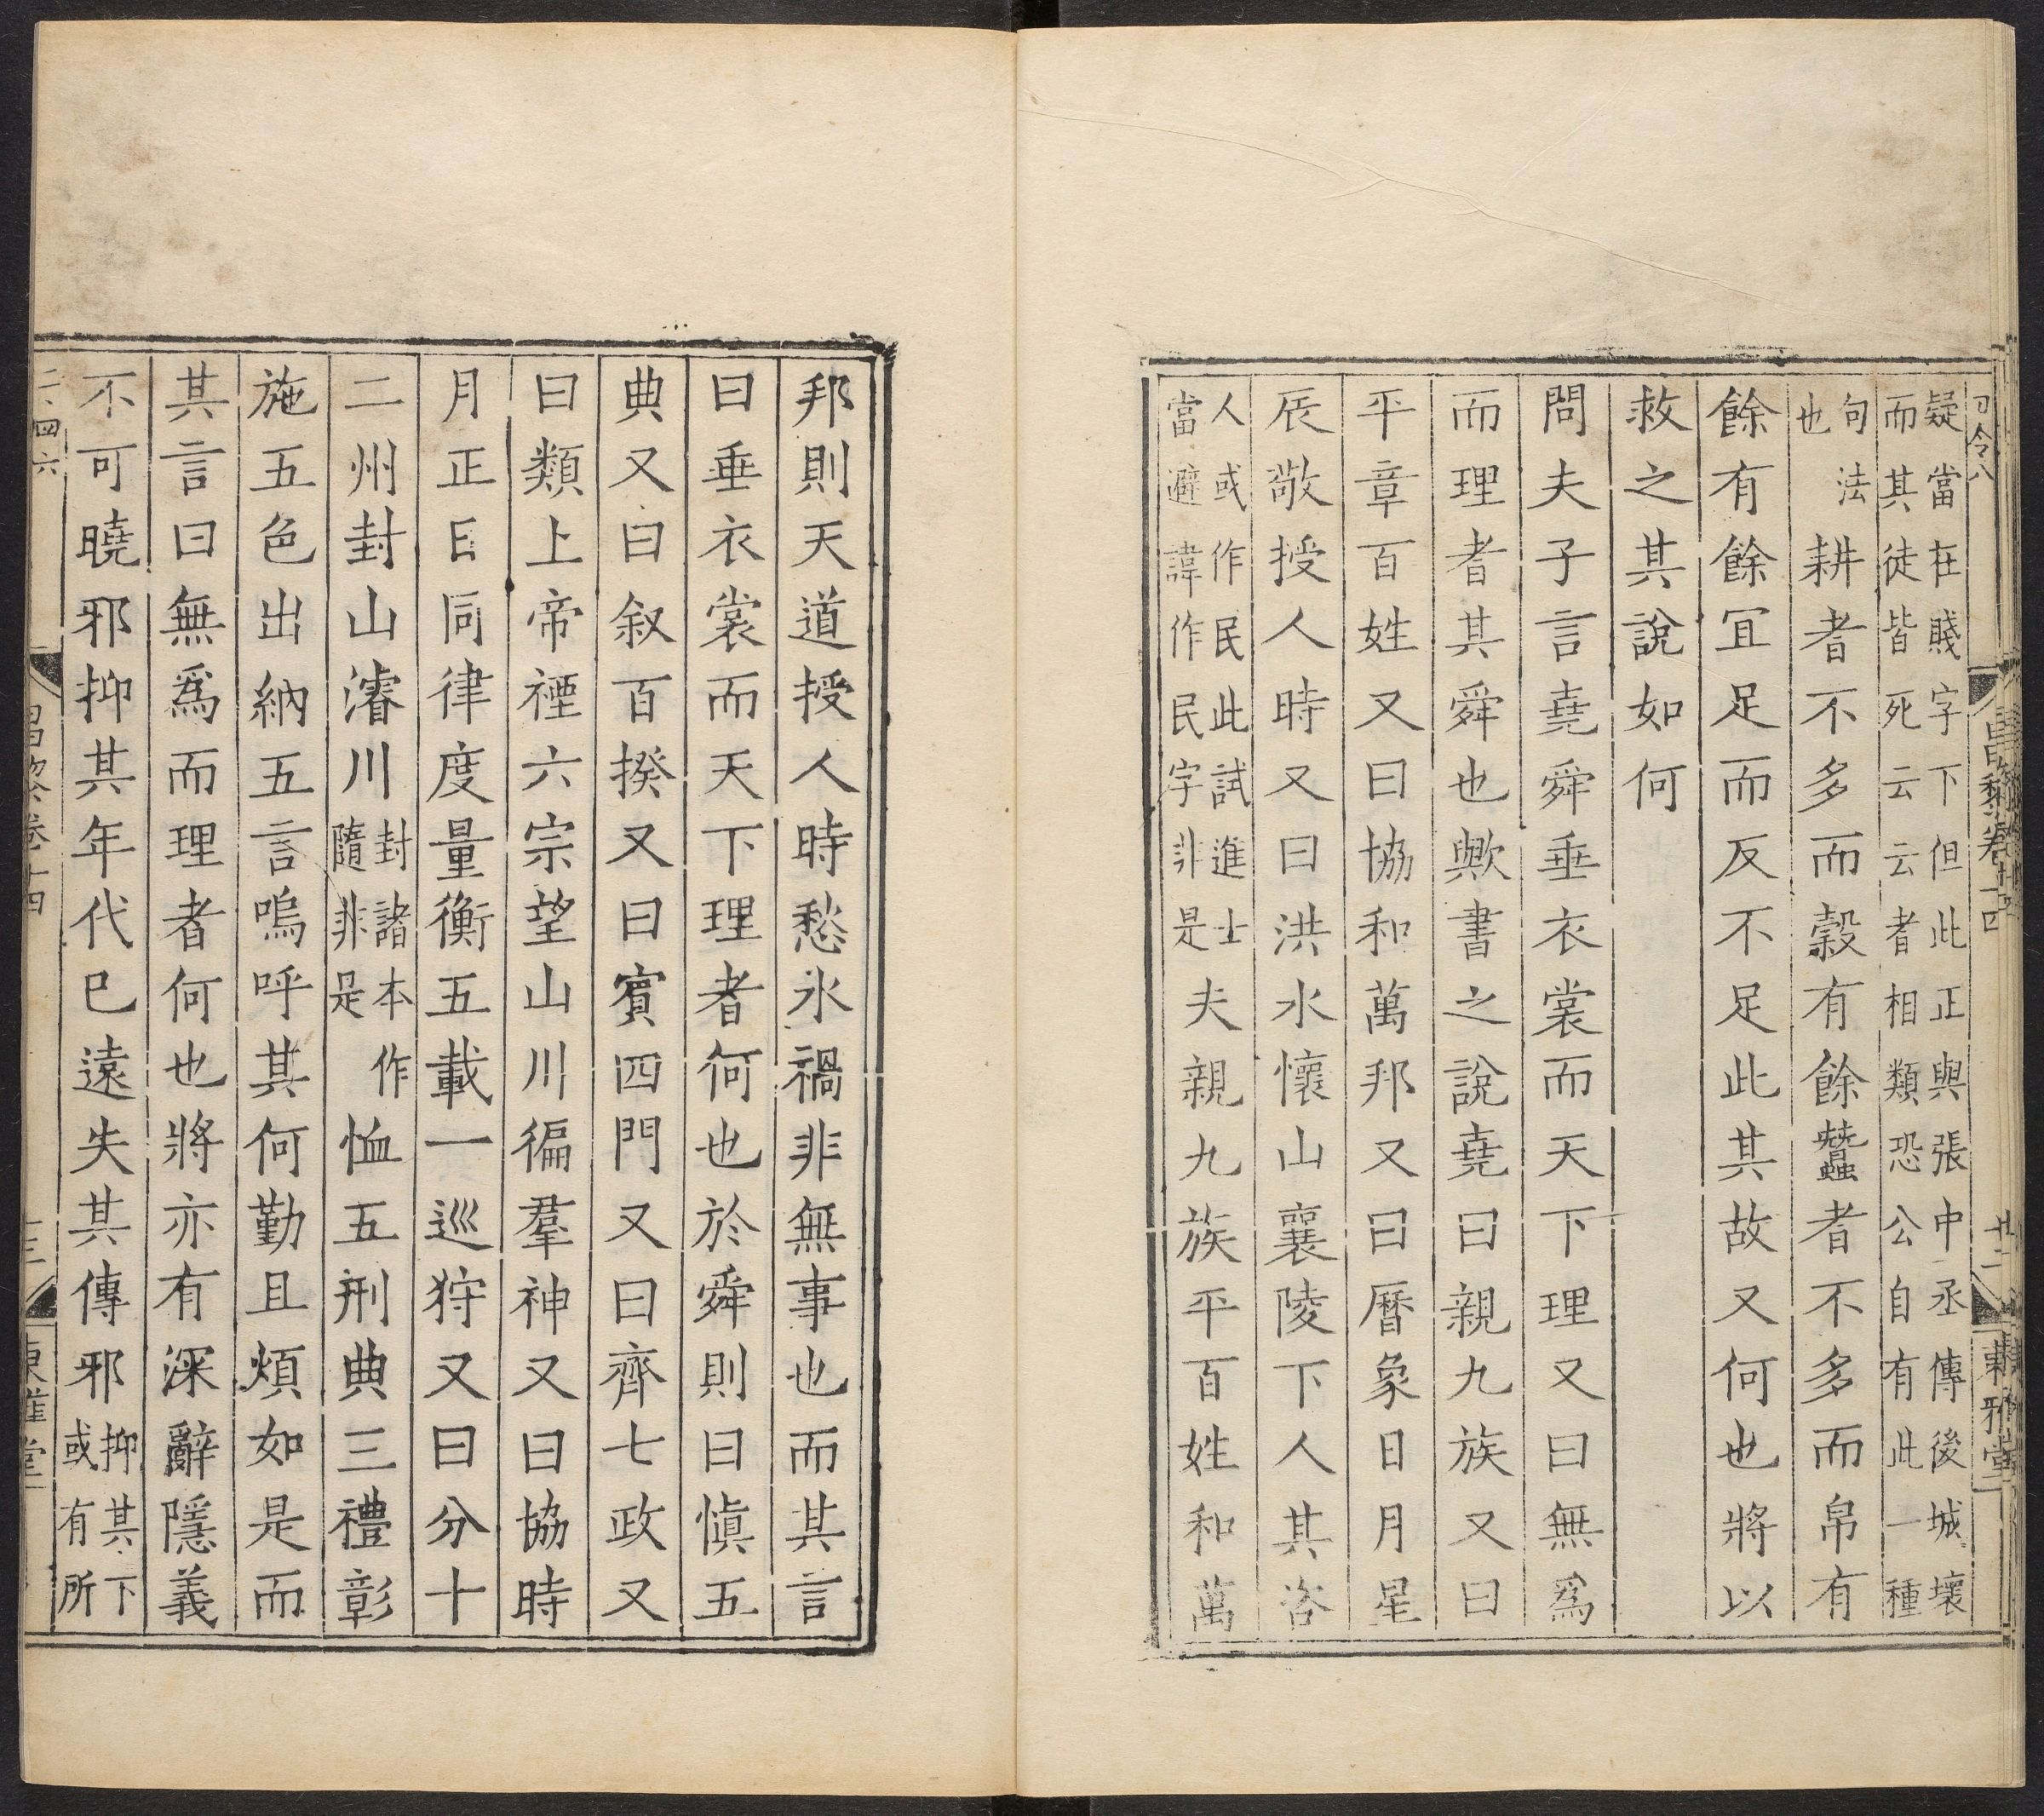 疑當在賤字下但此正與張中丞傳後城壞
而其徒皆死云云者相類恐公自有此一種
句法
也
耕者不多而穀有餘蠶者不多而帛有
餘有餘冝足而反不足此其故又何也將以
救之其說如何
問夫子言堯舜垂衣裳而天下理又曰無爲
而理者其舜也歟書之說堯曰親九族又曰
平章百姓又曰協和萬邦又曰曆象日月星
辰敬授人時又曰洪水懷山襄陵下人其咨
人或作民此試進士
當避諱作民字非是
夫親九族平百姓和萬
邦則天道授人時愁水禍非無事也而其言
曰垂衣裳而天下理者何也於舜則曰愼五
典又曰叙百揆又曰賓四門又曰齊七政又
曰類上帝禋六宗望山川徧羣神又曰協時
月正日同律度量衡五載一巡狩又曰分十
二州封山濬川
封諸本作
隨非是
恤五刑典三禮彰
施五色出納五言嗚呼其何勤且煩如是而
其言曰無爲而理者何也將亦有深辭隱義
不可曉邪抑其年代已遠失其傳邪
抑其下
或有所
昌黎卷十四
廿二
東雅堂